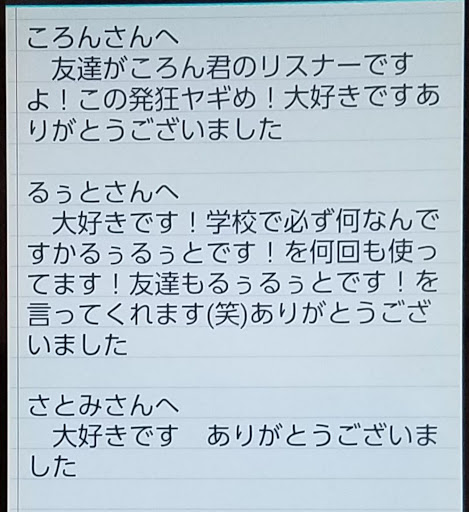 ころんさんへ
　友達がころん君のリスナーです
よ！この発狂ヤギめ！大好きですあ
りがとうございました
るぅとさんへ
　大好きです！学校で必ず何なんで
すかるぅるぅとです！を何回も使っ
てます！友達もるぅるぅとです！を
言ってくれます(笑)ありがとうござ
いました
さとみさんへ
　大好きです　ありがとうございま
した